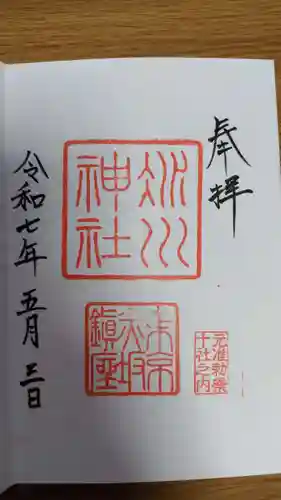 奉拝
氷川神社
東京赤坂鎮座
元准勅祭
十社之内
令和七年五月三日